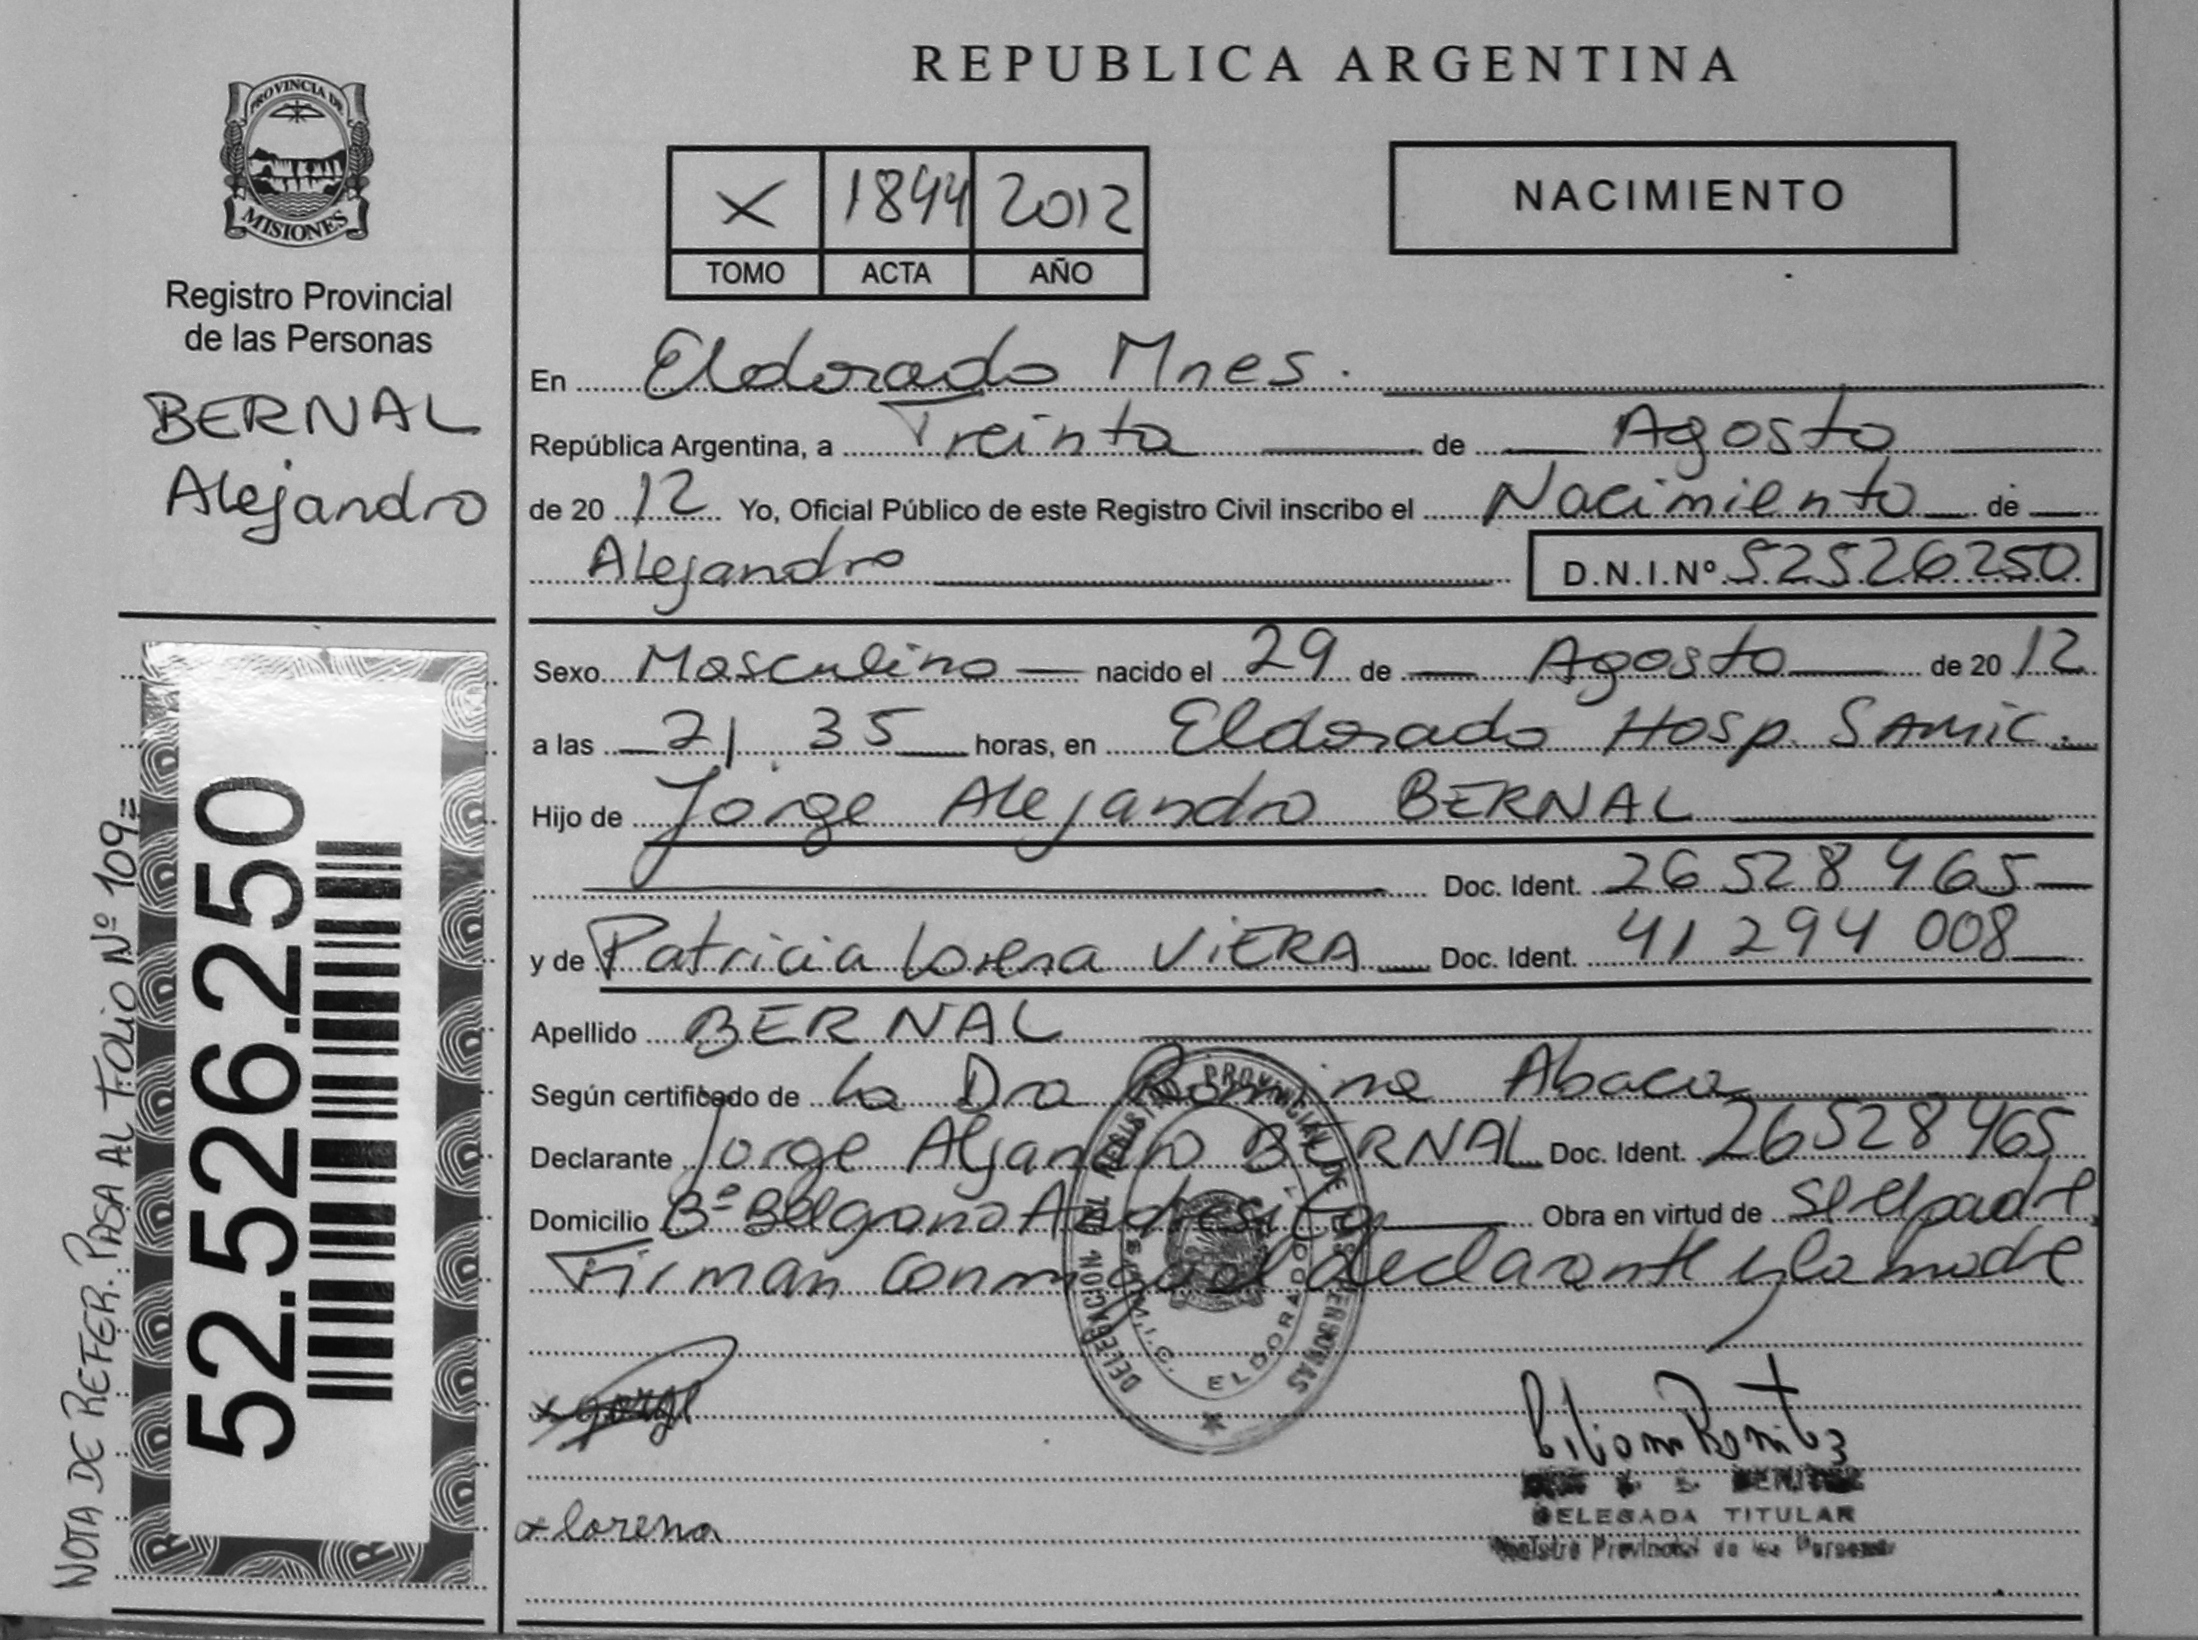 REPUBLICA ARGENTINA
PROVINCIA DE
MISIONES
Registro Provincial
de las Personas
BERNAL
Alejandro
X 1844 2012
TOMO ACTA AÑO
NACIMIENTO
En Eldorado Mnes.
República Argentina, a Treinta de Agosto
de 2012 Yo, Oficial Público de este Registro Civil inscribo el Nacimiento de
Alejandro D.N.I.Nº 52526250
Sexo Masculino nacido el 29 de Agosto de 2012
a las 21 35 horas, en Eldorado Hosp. SAMIC.
Hijo de Jorge Alejandro BERNAL
Doc. Ident. 26 528 465
y de Patricia Lorena VIERA Doc. Ident. 41 294 008
Apellido BERNAL
Según certificado de La Dra Romina Abaca
Declarante Jorge Aljandro BERNAL Doc. Ident. 26528465
Domicilio Bº Belgrano Andresito Obra en virtud de ser el padre
Firman conmigo el declarante y la madre
x Jorge
x lorena
DELEGADA TITULAR
Registro Provincial de las Personas
REGISTRO PROVINCIAL DE LAS PERSONAS
DELEGACION
ELDORADO
52.526.250
NOTA DE REFER. PASA AL FOLIO Nº 109=